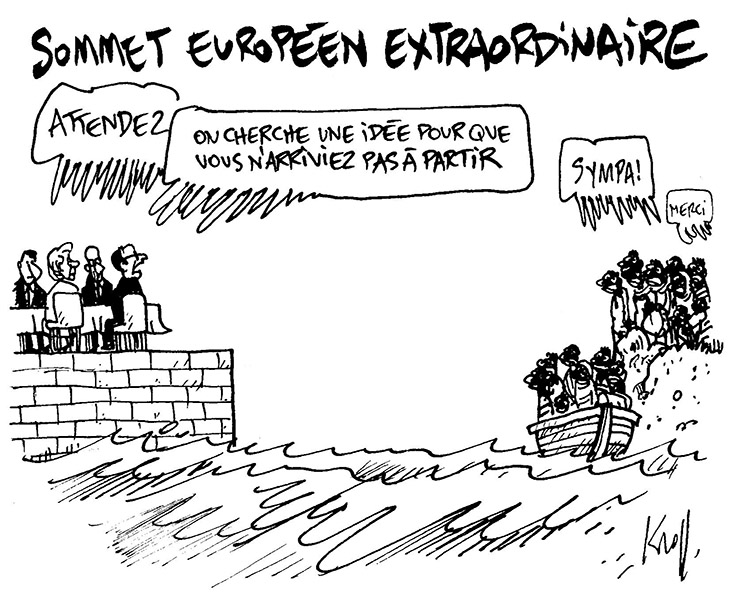 SOMMET EUROPÉEN EXTRAORDINAIRE
ATTENDEZ
ON CHERCHE UNE IDÉE POUR QUE
VOUS N'ARRIVIEZ PAS À PARTIR
SYMPA!
MERCI
Kroll.